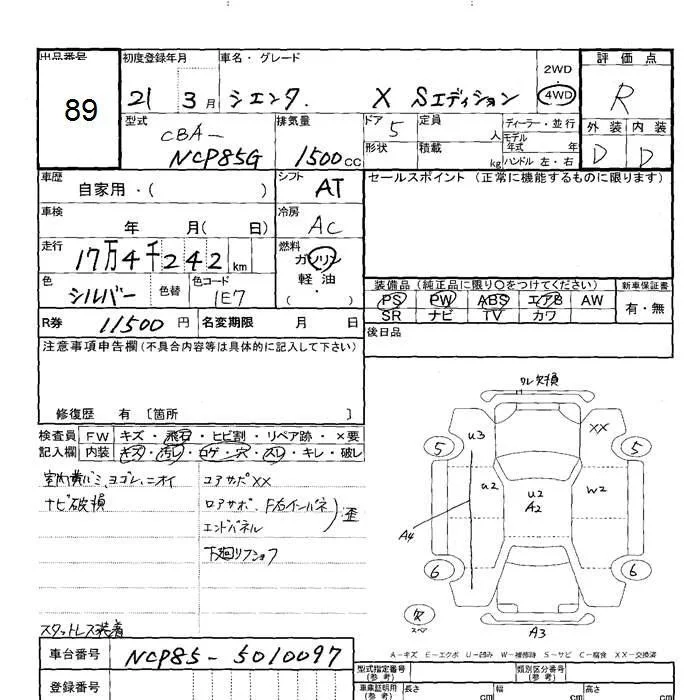 出品番号
89
初度登録年月
21 3月
車名・グレード
シエンタ. X Sエディション
2WD
・
4WD
評価点
R
外装 内装
D D
型式
CBA-
NCP85G
排気量
1500cc
ドア 5
形状
定員
人
積載
kg
ディーラー・並行
モデル
年式 年
ハンドル 左・右
車歴
自家用・( )
シフト
AT
車検
年 月( 日)
冷房
AC
走行
17万4千242km
燃料
ガソリン
・
軽油
・
( )
色
シルバー
色替
色コード
1E7
セールスポイント(正常に機能するものに限ります)
装備品(純正品に限り○をつけてください)
新車保証書
PS PW ABS エアB AW
SR ナビ TV カワ
有・無
R券 11500円
名変期限 月 日
後日品
注意事項申告欄(不具合内容等は具体的に記入して下さい)
修復歴 有〔箇所 〕
検査員
記入欄
FW キズ・飛石・ヒビ割・リペア跡・×要
内装 キズ・汚レ・コゲ・穴・スレ・キレ・破レ
ヨゴレ、ニオイ
ナビ破損
コアサポXX
ロアサポ、F右インパネ
エンドパネル
歪
下廻り
スタットレス装着
欠損
u3
XX
5
5
u2
u2
A2
w2
A4
6
6
欠
スペ
A3
A-キズ E-エクボ U-凹み W-補修跡 S-サビ C-腐食 XX-交換済
車台番号
NCP85-5010097
登録番号
型式指定番号
(参考)
類別区分番号
(参考)
車庫証明用
(参考)
長さ cm
幅 cm
高さ cm